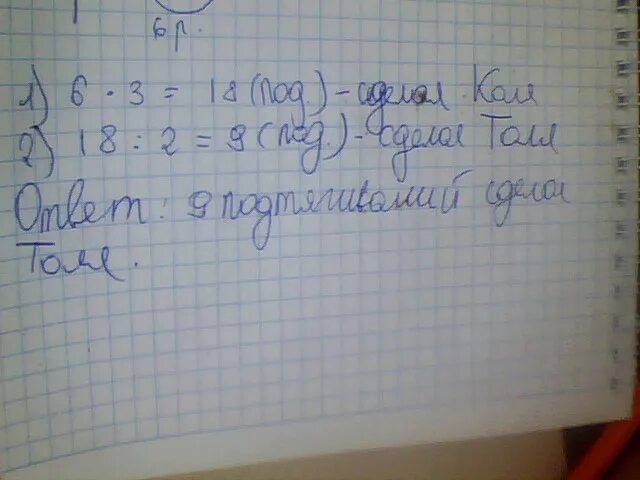 6 р.
1) 6 · 3 = 18 (под.) – сделал Коля
2) 18 : 2 = 9 (под.) – сделал Толя
Ответ: 9 подтягиваний сделал
Толя.